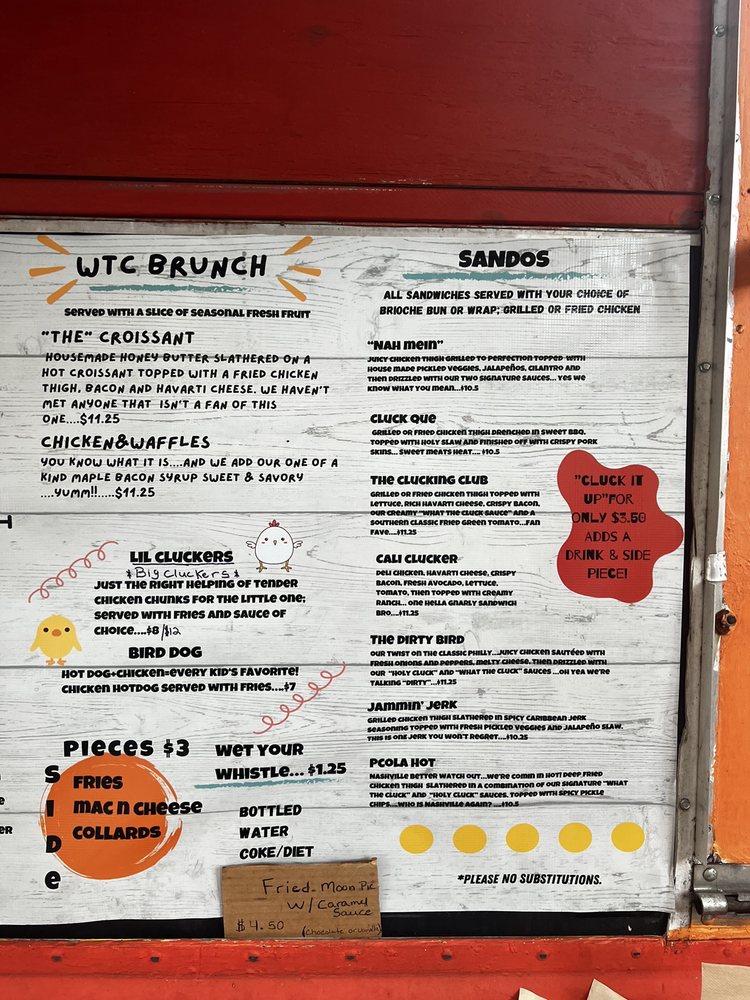 WTC BRUNCH
SERVED WITH A SLICE OF SEASONAL FRESH FRUIT
"THE" CROISSANT
HOUSEMADE HONEY BUTTER SLATHERED ON A
HOT CROISSANT TOPPED WITH A FRIED CHICKEN
THIGH, BACON AND HAVARTI CHEESE. WE HAVEN'T
MET ANYONE THAT ISN'T A FAN OF THIS
ONE....$11.25
CHICKEN&WAFFLES
YOU KNOW WHAT IT IS....AND WE ADD OUR ONE OF A
KIND MAPLE BACON SYRUP SWEET & SAVORY
....YUMM!!.....$11.25
LIL CLUCKERS
Big Cluckers
JUST THE RIGHT HELPING OF TENDER
CHICKEN CHUNKS FOR THE LITTLE ONE;
SERVED WITH FRIES AND SAUCE OF
CHOICE....$8/$12
BIRD DOG
HOT DOG+CHICKEN=EVERY KID'S FAVORITE!
CHICKEN HOTDOG SERVED WITH FRIES....$7
PIECES $3
SIDE
FRIES
MAC N CHEESE
COLLARDS
WET YOUR
WHISTLE... $1.25
BOTTLED
WATER
COKE/DIET
Fried Moon Pie
W/ Caramel
Sauce
$4.50 (Chocolate or vanilla)
SANDOS
ALL SANDWICHES SERVED WITH YOUR CHOICE OF
BRIOCHE BUN OR WRAP; GRILLED OR FRIED CHICKEN
"NAH MEIN"
JUICY CHICKEN THIGH GRILLED TO PERFECTION TOPPED WITH
HOUSE MADE PICKLED VEGGIES, JALAPEÑOS, CILANTRO AND
THEN DRIZZLED WITH OUR TWO SIGNATURE SAUCES... YES WE
KNOW WHAT YOU MEAN...$10.5
CLUCK QUE
GRILLED OR FRIED CHICKEN THIGH DRENCHED IN SWEET BBQ,
TOPPED WITH HOLY SLAW AND FINISHED OFF WITH CRISPY PORK
SKINS... SWEET MEATS HEAT.... $10.5
THE CLUCKING CLUB
GRILLED OR FRIED CHICKEN THIGH TOPPED WITH
LETTUCE, RICH HAVARTI CHEESE, CRISPY BACON,
OUR CREAMY "WHAT THE CLUCK SAUCE" AND A
SOUTHERN CLASSIC FRIED GREEN TOMATO...FAN
FAVE....$11.25
"CLUCK IT
UP"FOR
ONLY $3.50
ADDS A
DRINK & SIDE
PIECE!
CALI CLUCKER
DELI CHICKEN, HAVARTI CHEESE, CRISPY
BACON, FRESH AVOCADO, LETTUCE,
TOMATO, THEN TOPPED WITH CREAMY
RANCH... ONE HELLA GNARLY SANDWICH
BRO....$11.25
THE DIRTY BIRD
OUR TWIST ON THE CLASSIC PHILLY...JUICY CHICKEN SAUTÉED WITH
FRESH ONIONS AND PEPPERS, MELTY CHEESE, THEN DRIZZLED WITH
OUR "HOLY CLUCK" AND "WHAT THE CLUCK" SAUCES ...OH YEA WE'RE
TALKING "DIRTY"...$11.25
JAMMIN' JERK
GRILLED CHICKEN THIGH SLATHERED IN SPICY CARIBBEAN JERK
SEASONING TOPPED WITH FRESH PICKLED VEGGIES AND JALAPEÑO SLAW.
THIS IS ONE JERK YOU WON'T REGRET...$10.25
PCOLA HOT
NASHVILLE BETTER WATCH OUT...WE'RE COMIN IN HOT! DEEP FRIED
CHICKEN THIGH SLATHERED IN A COMBINATION OF OUR SIGNATURE "WHAT
THE CLUCK" AND "HOLY CLUCK" SAUCES. TOPPED WITH SPICY PICKLE
CHIPS...WHO IS NASHVILLE AGAIN? ....$10.5
*PLEASE NO SUBSTITUTIONS.